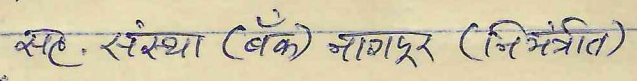 सह. संस्था (बँक) नागपूर (निमंत्रीत)